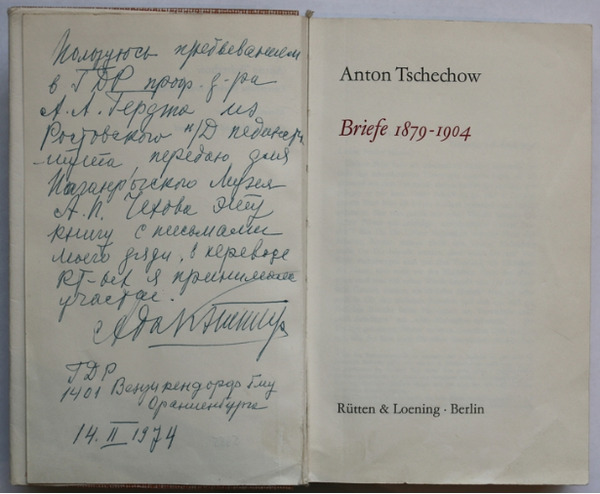 Пользуюсь пребыванием
в ГДР проф. д-ра
А.Л. из
Ростовского н/Д пединсти-
тута передаю для
Таганрогского Музея
А.П. Чехова эту
книгу с письмами
моего дяди, в переводе
кот-ых я принимала
участие.
ГДР
1401 бл/
14. II 1974
Anton Tschechow
Briefe 1879-1904
Rütten & Loening · Berlin